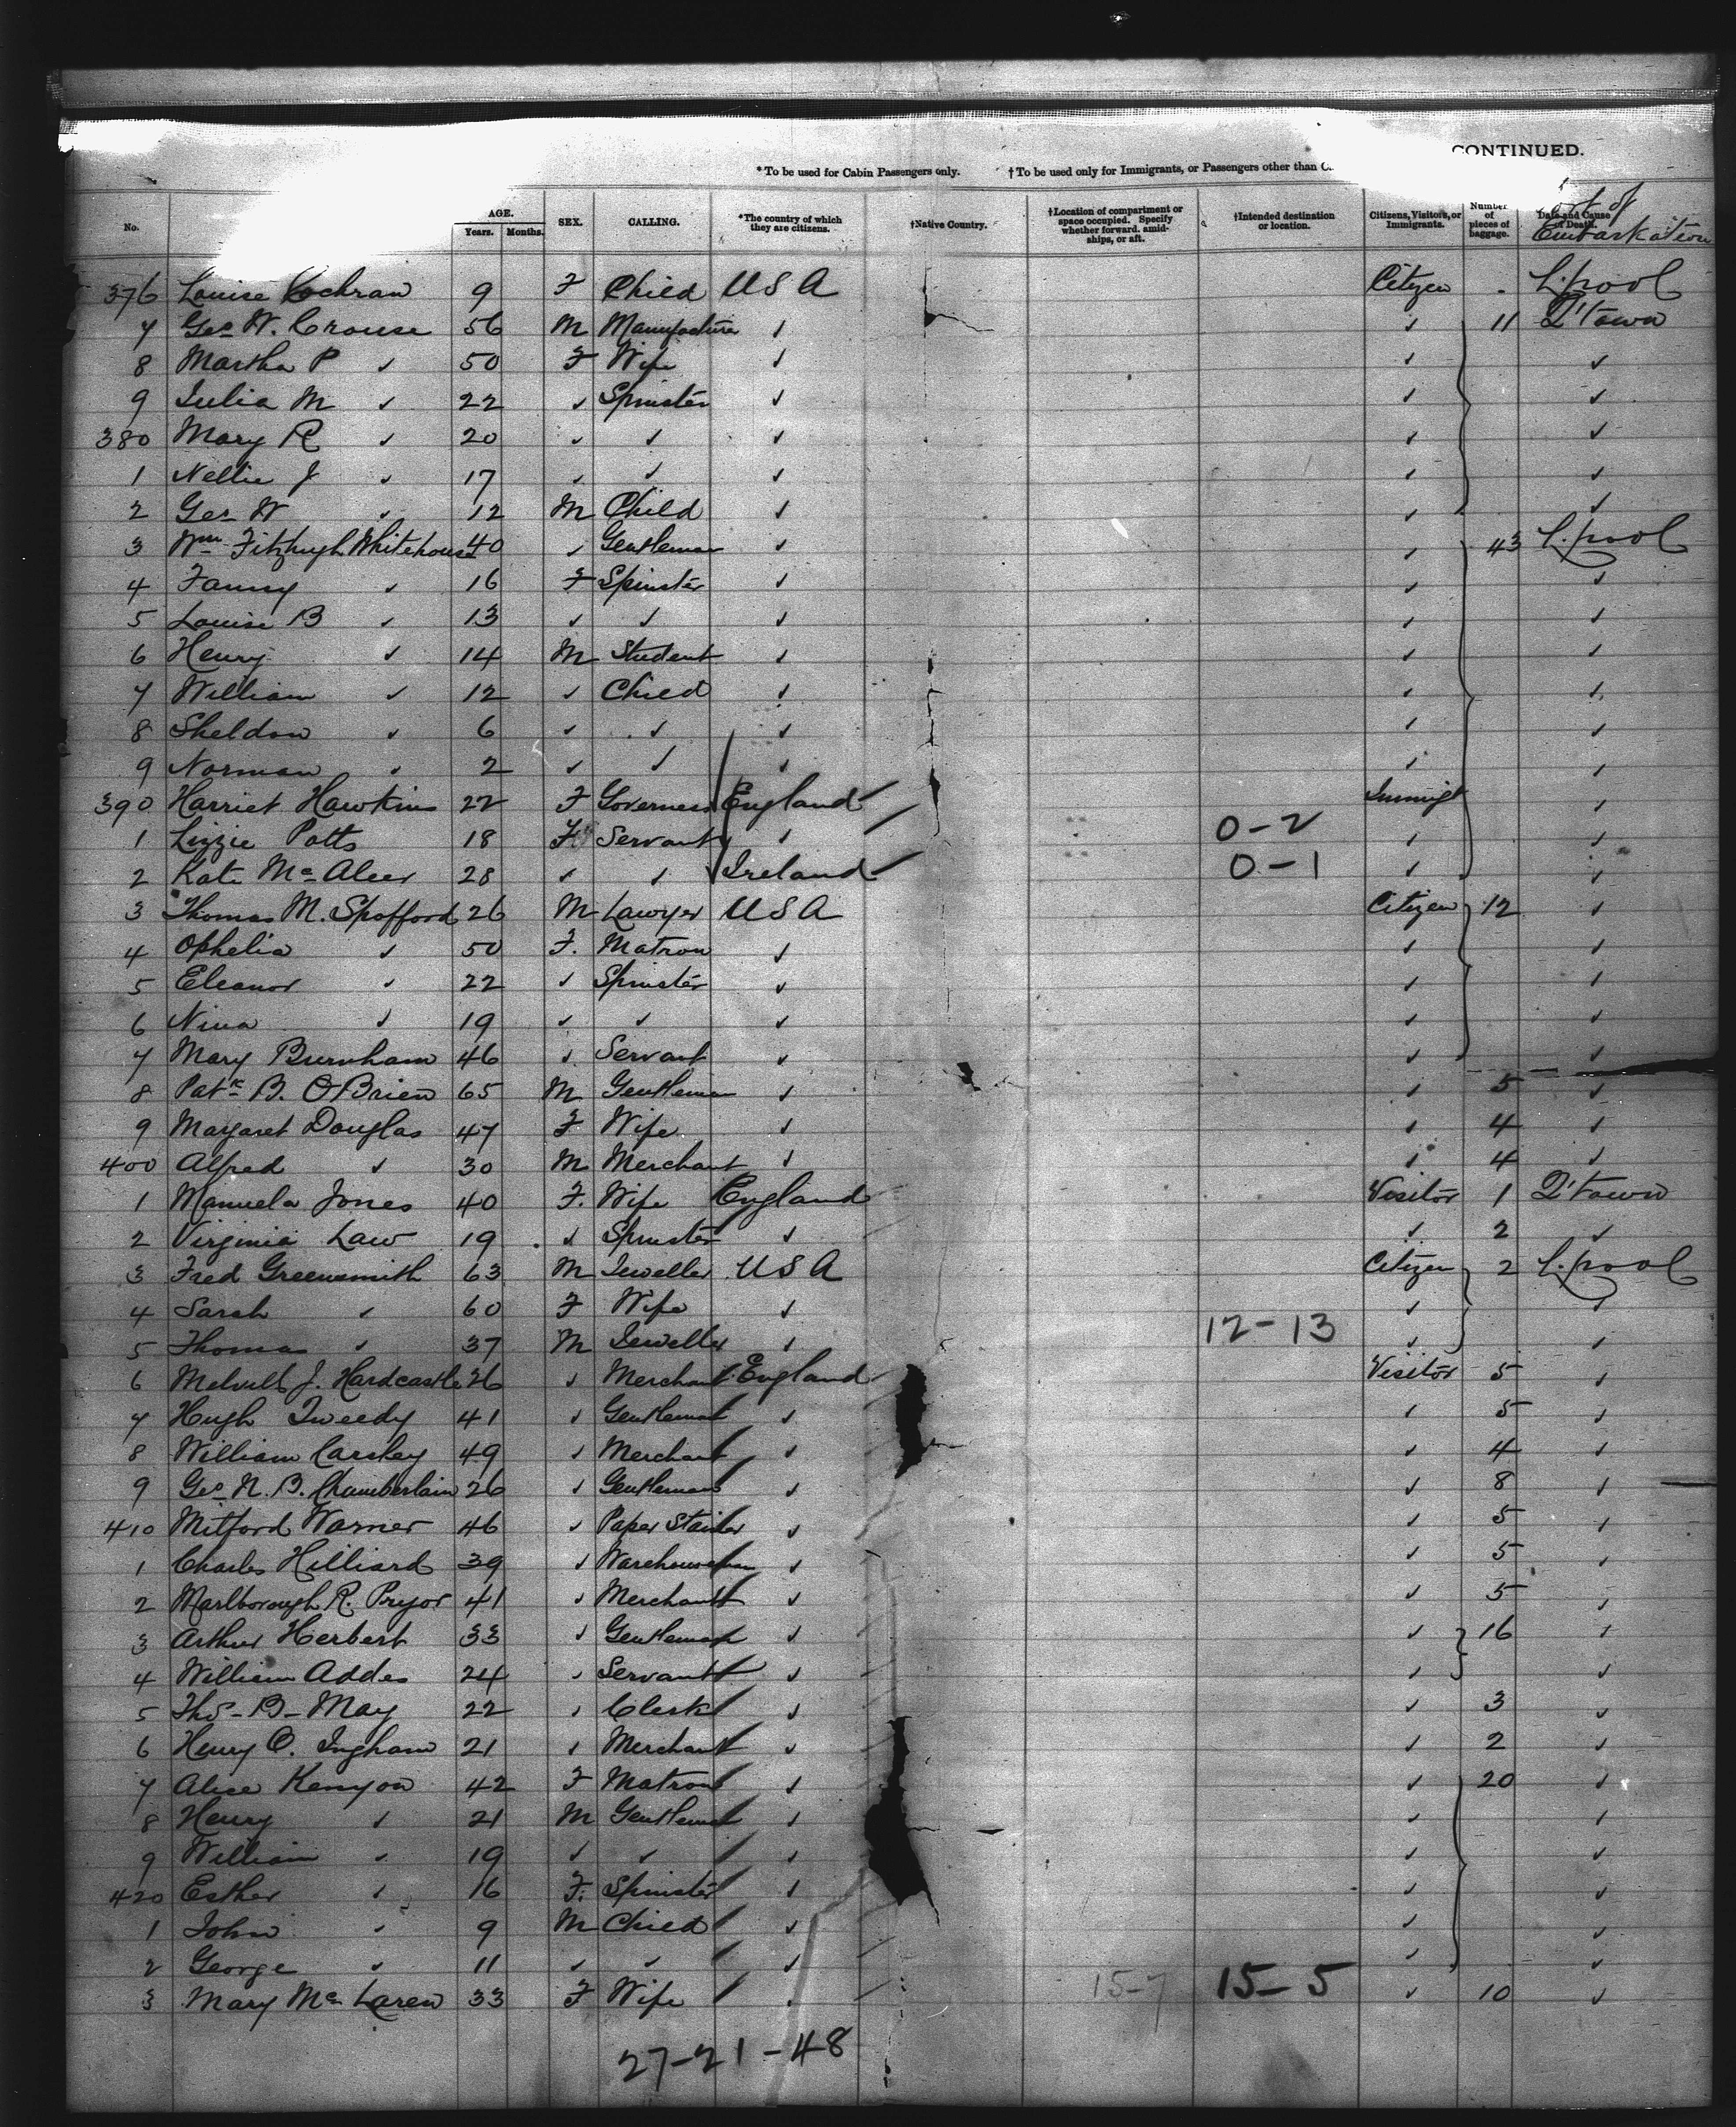 CONTINUED.
*To be used for Cabin Passengers only. †To be used only for Immigrants, or Passengers other than C
Port of
Embarkation
No. AGE. Years. Months. SEX. CALLING. *The country of which they are citizens. †Native Country. †Location of compartment or space occupied. Specify whether forward, amidships, or aft. †Intended destination or location. Citizens, Visitors, or Immigrants. Number of pieces of baggage. Date and Cause of Death.
376 Louise Cochran 9 F Child USA Citizen L.pool
7 Geo W. Crouse 56 M Manufacturer ✓ ✓ 11 Q'town
8 Martha P ✓ 50 F Wife ✓ ✓ ✓
9 Julia M ✓ 22 ✓ Spinster ✓ ✓ ✓
380 Mary R ✓ 20 ✓ ✓ ✓ ✓ ✓
1 Nellie J ✓ 17 ✓ ✓ ✓ ✓ ✓
2 Geo W ✓ 12 M Child ✓ ✓ ✓
3 Wm Fitzhugh Whitehouse 40 ✓ Gentleman ✓ ✓ 43 L.pool
4 Fanny ✓ 16 F Spinster ✓ ✓ ✓
5 Louise B ✓ 13 ✓ ✓ ✓ ✓ ✓
6 Henry ✓ 14 M Student ✓ ✓ ✓
7 William ✓ 12 ✓ Child ✓ ✓ ✓
8 Sheldon ✓ 6 ✓ ✓ ✓ ✓ ✓
9 Norman ✓ 2 ✓ ✓ ✓ ✓ ✓
390 Harriet Hawkins 22 F Governess England Immigt ✓
1 Lizzie Potts 18 F Servant ✓ 0-2 ✓ ✓
2 Kate McAleer 28 ✓ ✓ Ireland 0-1 ✓ ✓
3 Thomas M. Spofford 26 M Lawyer USA Citizen 12 ✓
4 Ophelia ✓ 50 F. Matron ✓ ✓ ✓
5 Eleanor ✓ 22 ✓ Spinster ✓ ✓ ✓
6 Nina ✓ 19 ✓ ✓ ✓ ✓ ✓
7 Mary Burnham 46 ✓ Servant ✓ ✓ ✓
8 Patk B. O'Brien 65 M Gentleman ✓ ✓ 5 ✓
9 Margaret Douglas 47 F Wife ✓ ✓ 4 ✓
400 Alfred ✓ 30 M Merchant ✓ ✓ 4 ✓
1 Manuela Jones 40 F. Wife England Visitor 1 Q'town
2 Virginia Law 19 ✓ Spinster ✓ ✓ 2 ✓
3 Fred Greensmith 63 M Jeweller USA Citizen 2 L.pool
4 Sarah ✓ 60 F Wife ✓ ✓ ✓
5 Thomas ✓ 37 M Jeweller ✓ 12-13 ✓ ✓
6 Melvill J. Hardcastle 26 ✓ Merchant England Visitor 5 ✓
7 Hugh Tweedy 41 ✓ Gentleman ✓ ✓ 5 ✓
8 William Carsley 49 ✓ Merchant ✓ ✓ 4 ✓
9 Geo N. B. Chamberlain 26 ✓ Gentleman ✓ ✓ 8 ✓
410 Mitford Warner 46 ✓ Paper Stainer ✓ ✓ 5 ✓
1 Charles Hilliard 39 ✓ Warehouseman ✓ ✓ 5 ✓
2 Marlborough R. Pryor 41 ✓ Merchant ✓ ✓ 5 ✓
3 Arthur Herbert 33 ✓ Gentleman ✓ ✓ 16 ✓
4 William Addes 24 ✓ Servant ✓ ✓ ✓
5 Thos B- May 22 ✓ Clerk ✓ ✓ 3 ✓
6 Henry O. Ingham 21 ✓ Merchant ✓ ✓ 2 ✓
7 Alice Kenyon 42 F Matron ✓ ✓ 20 ✓
8 Henry ✓ 21 M Gentleman ✓ ✓ ✓
9 William ✓ 19 ✓ ✓ ✓ ✓ ✓
420 Esther ✓ 16 F. Spinster ✓ ✓ ✓
1 John ✓ 9 M Child ✓ ✓ ✓
2 George ✓ 11 ✓ ✓ ✓ ✓ ✓
3 Mary McLaren 33 F Wife ✓ 15-7 15-5 ✓ 10 ✓
27-21-48